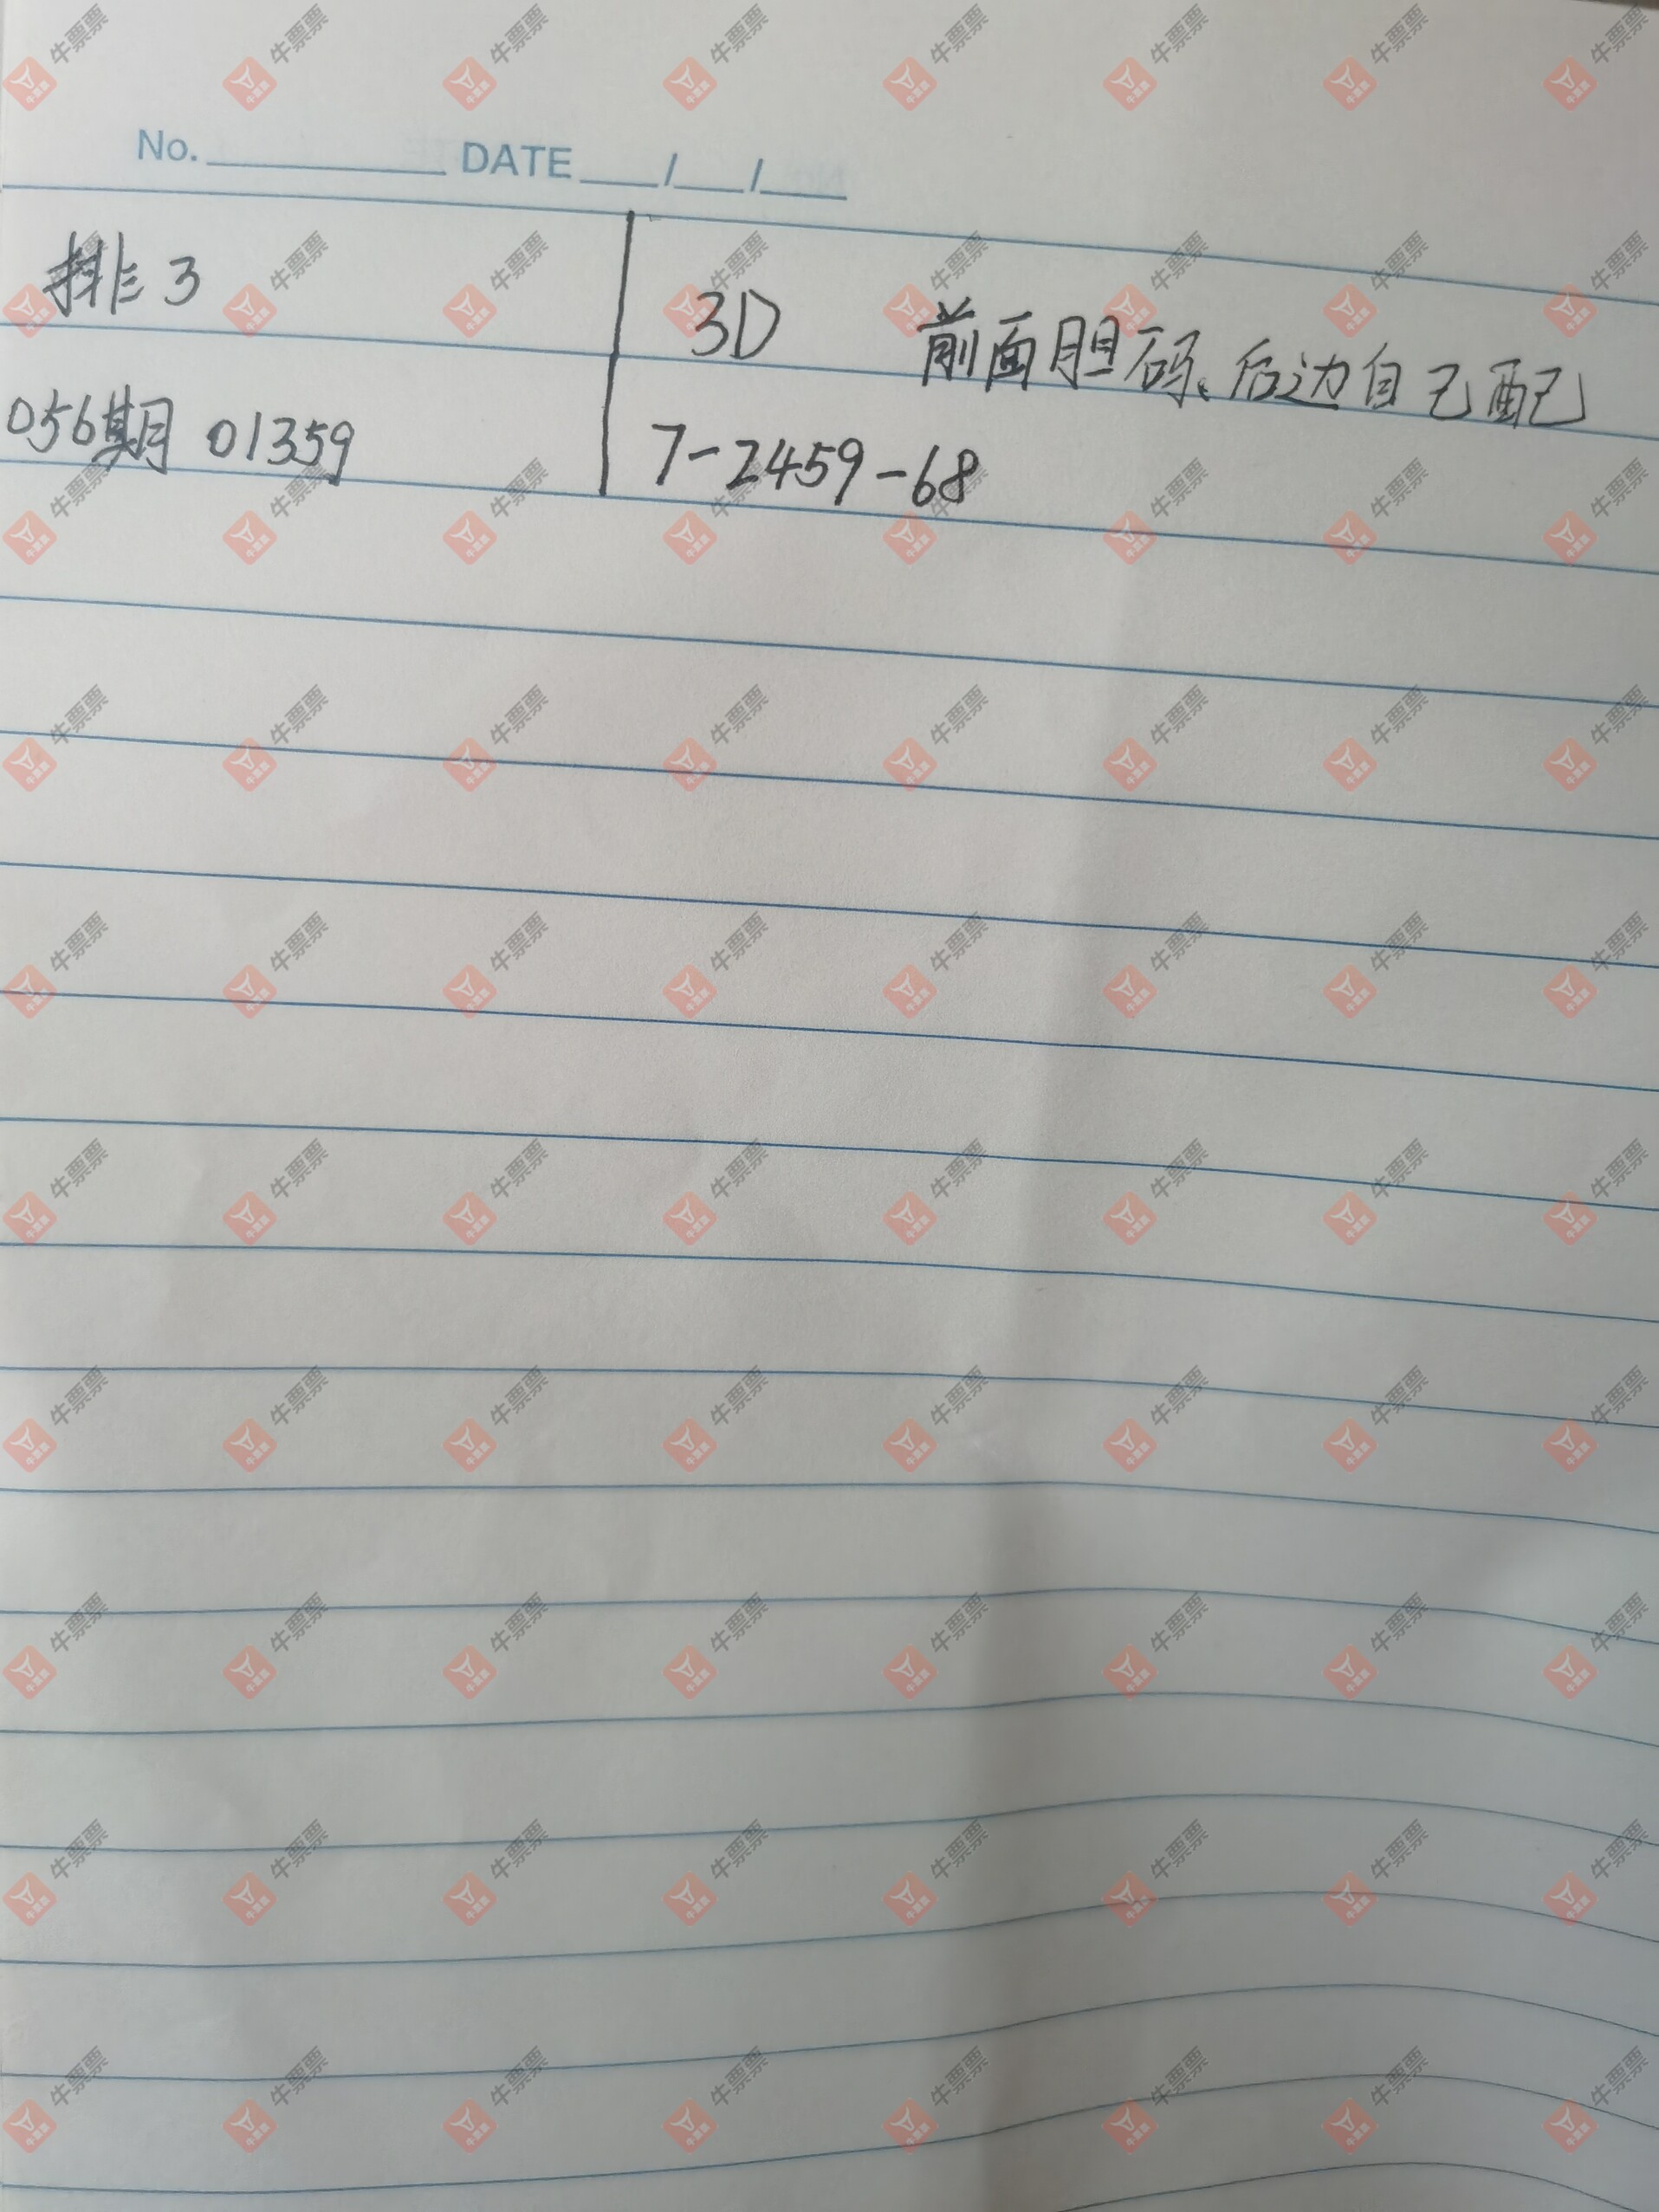 No. DATE / /
排3
3D 前面胆码、后边自己配
056期 01359
7-2459-68
牛票票